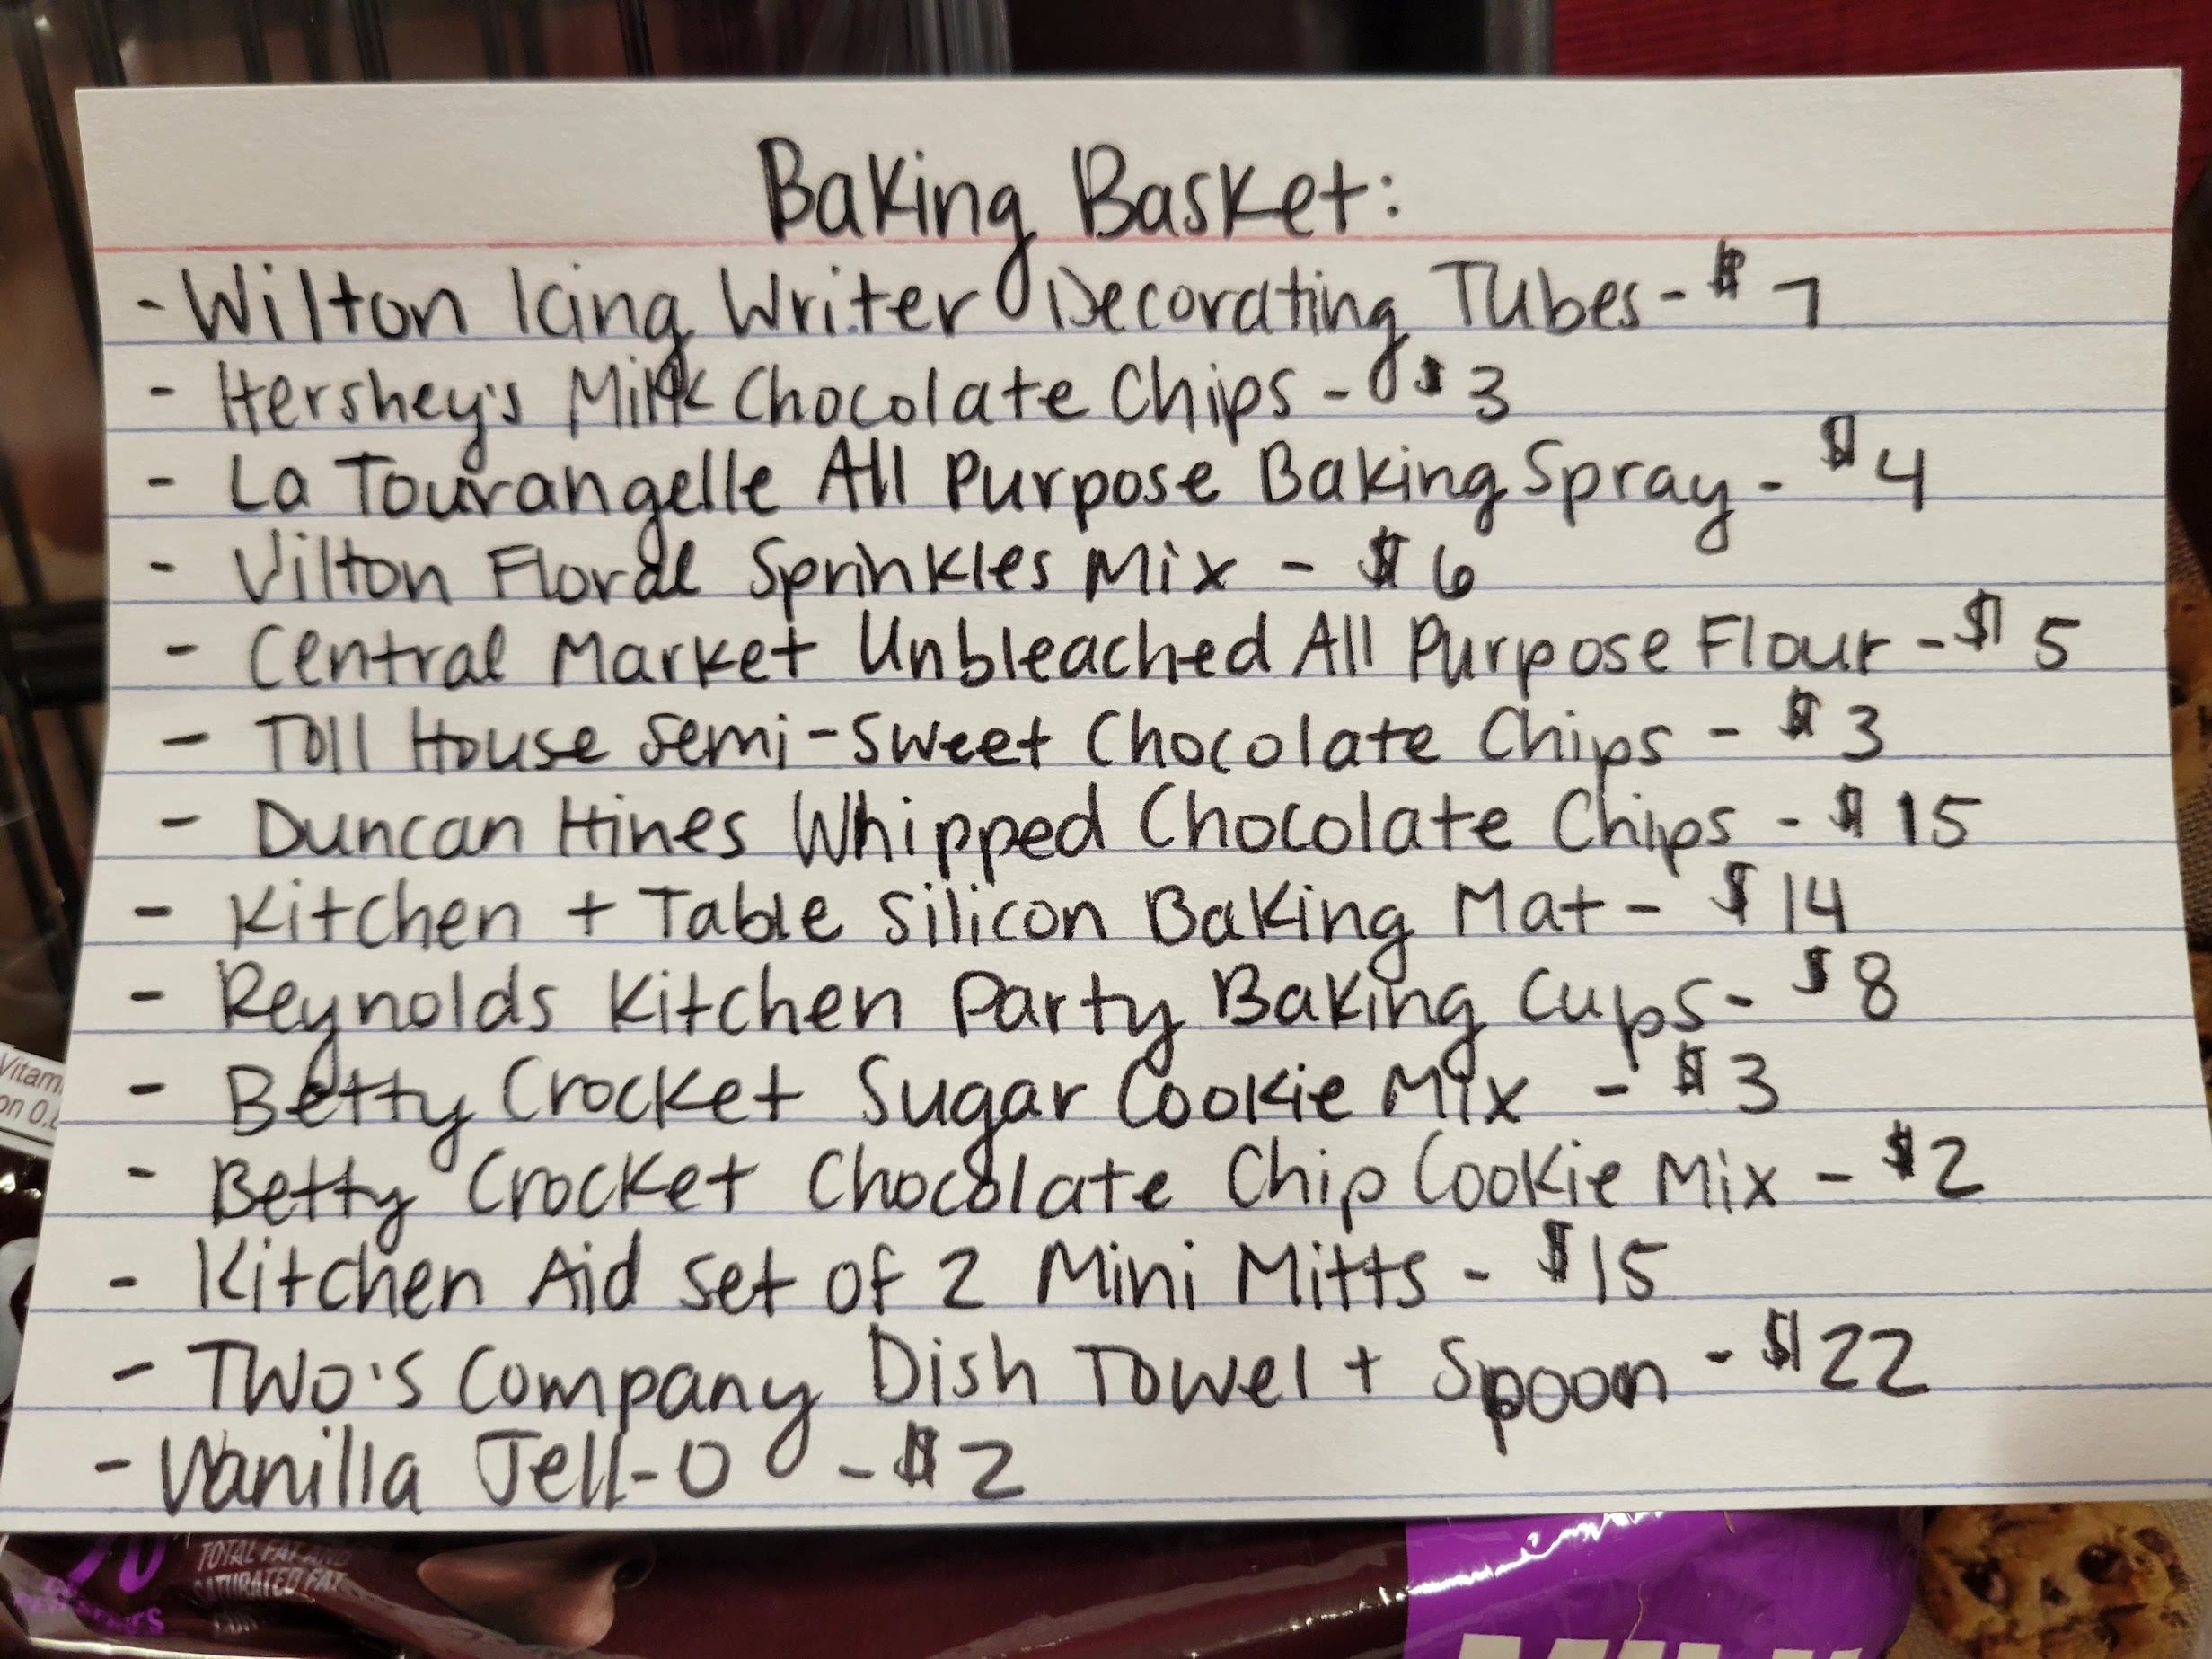 Baking Basket:
- Wilton Icing Writer Decorating Tubes - $7
- Hershey's Milk Chocolate Chips - $3
- La Tourangelle All Purpose Baking Spray - $4
- Vilton Floral Sprinkles Mix - $6
- Central Market Unbleached All Purpose Flour - $5
- Toll House Semi-Sweet Chocolate Chips - $3
- Duncan Hines Whipped Chocolate Chips - $15
- Kitchen + Table Silicon Baking Mat - $14
- Reynolds Kitchen Party Baking Cups - $8
- Betty Crocket Sugar Cookie Mix - $3
- Betty Crocket Chocolate Chip Cookie Mix - $2
- Kitchen Aid Set of 2 Mini Mitts - $15
- Two's Company Dish Towel + Spoon - $22
- Vanilla Jell-O - $2
TOTAL FAT AND
SATURATED FAT